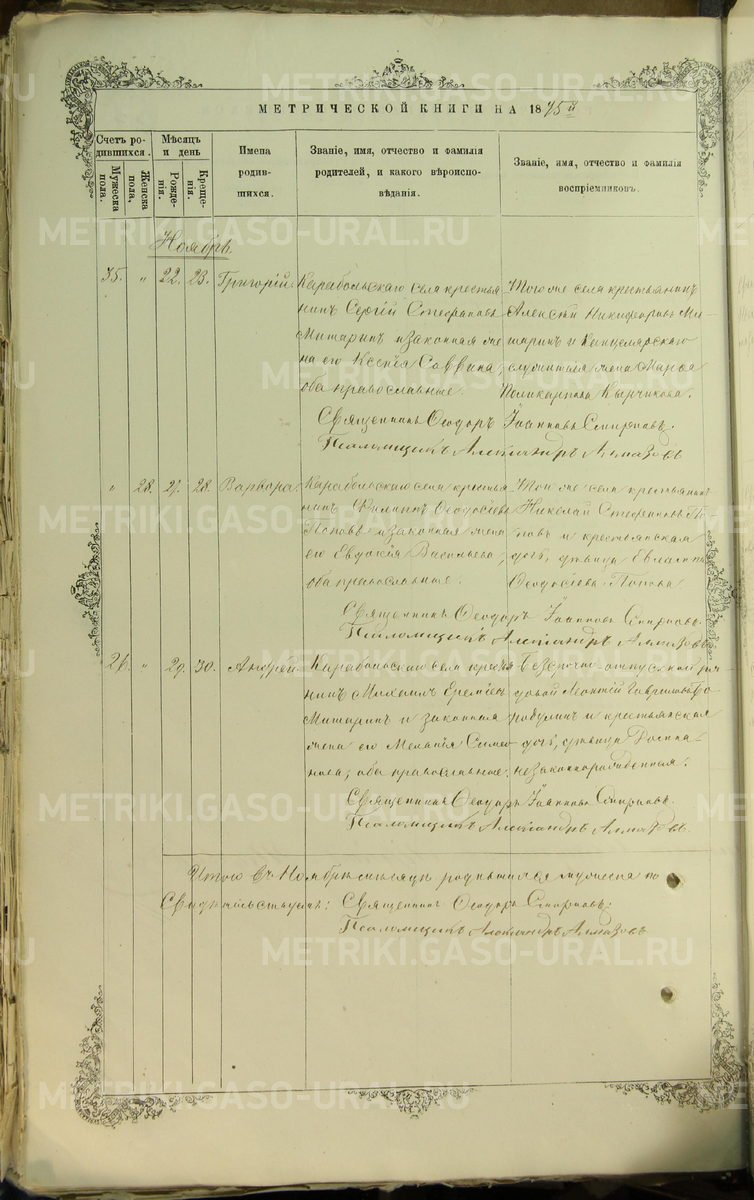 МЕТРИЧЕСКОЙ КНИГИ НА 1875й
Счетъ родившихся.
Мужеска пола.
Женска пола.
Мѣсяцъ и день
Рожденія.
Крещенія.
Имена родившихся.
Званіе, имя, отчество и фамилія родителей, и какого вѣроисповѣданія.
Званіе, имя, отчество и фамилія воспріемниковъ.
Ноябрь
" 22. 23. Григорій.
Карабольскаго села крестья
нинъ Сергій Стефановъ
Мишаринъ и законная же
на его Ксенія Саввина,
оба православные.
Того же села крестьянинъ
Алексѣй Никифоровъ Ми
шаринъ и Канцелярскаго
служителя жена Марья
Поликарпова Кырчикова.
Священникъ Ѳеодоръ Іоанновъ Смирновъ.
Псаломщикъ Александръ Алмазовъ
" 28. 27. 28. Варвара.
Карабольскаго села крестья
нинъ Филиппъ Ѳеодосіевъ
Поповъ и законная жена
его Евдокія Васильева,
оба православные.
Того же села крестьянинъ
Николай Стефановъ По
повъ и крестьянская
дочь, дѣвица Евлампія
Ѳеодосіева Попова
Священникъ Ѳеодоръ Іоанновъ Смирновъ.
Псаломщикъ Александръ Алмазовъ
" 29. 30. Андрей.
Карабольскаго села крестья
нинъ Михаилъ Ереміевъ
Мишаринъ и законная
жена его Меланія Симео
нова, оба православные.
Безсрочно-отпускной ря
довой Леонтій Гавриловъ
и крестьянская
дочь, дѣвица
незаконнорожденная.
Священникъ Ѳеодоръ Іоанновъ Смирновъ.
Псаломщикъ Александръ Алмазовъ.
Итого въ Ноябрѣ мѣсяцѣ родившихся мужеска по
Свидѣтельствуемъ: Священникъ Ѳеодоръ Смирновъ.
Псаломщикъ Александръ Алмазовъ
METRIKI.GASO-URAL.RU